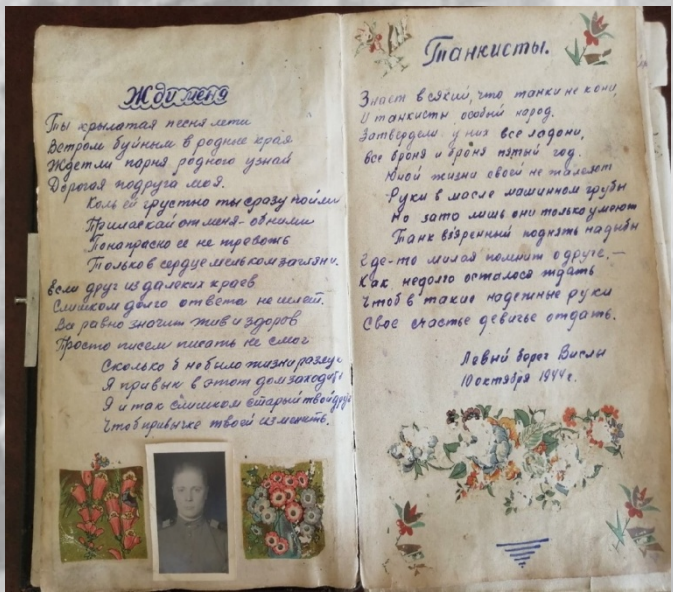 Жди меня
Ты крылатая песня лети
Ветром буйным в родные края
Ждет ли парня родного узнай
Дорогая подруга моя.
Коль ей грустно ты сразу пойми
Приласкай от меня - обними
Понапрасно ее не тревожь
Только в сердце мельком загляни.
Если друг из далеких краев
Слишком долго ответа не шлет.
Все равно значит жив и здоров
Просто писем писать не смог
Сколько б не было жизни разлук
Я привык в этот дом заходить
Я и так слишком старый твой друг
Чтоб привычке твоей изменить.
Танкисты.
Знает всякий, что танки не кони,
И танкисты особый народ.
Затвердели у них все ладони,
Все броня и броня пятый год.
Юной жизни своей не жалеют
Руки в масле машинном грубы
Но зато лишь они только умеют
Танк взъяренный поднять на дыбы
Где-то милая помнит о друге, —
Как недолго осталося ждать
Чтоб в такие надежные руки
Свое счастье девичье отдать.
Левый берег Вислы
10 октября 1944 г.